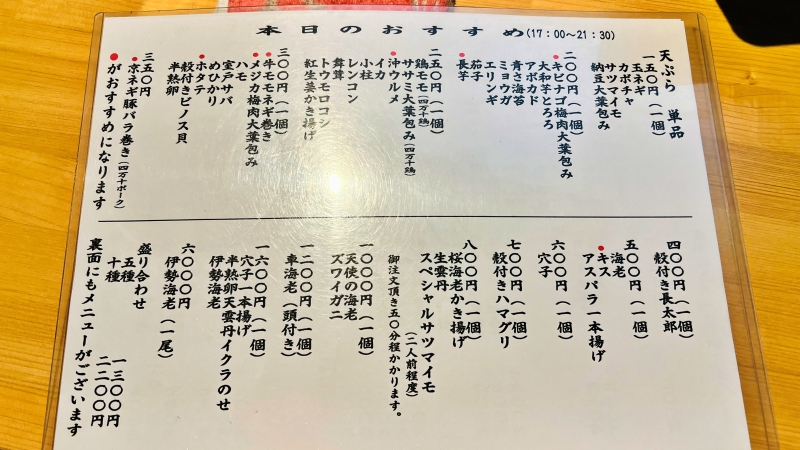 本日のおすすめ(17:00~21:30)
天ぷら 単品
一五〇円(一個)
玉ネギ
カボチャ
サツマイモ
納豆大葉包み
二〇〇円(一個)
●キビナゴ梅肉大葉包み
大和芋とろろ
アボカド
青さ海苔
ミョウガ
エリンギ
茄子
●長芋
二五〇円(一個)
鶏モモ(四万十鶏)
ササミ大葉包み(四万十鶏)
●沖ウルメ
イカ
小柱
レンコン
舞茸
トウモロコシ
紅生姜かき揚げ
三〇〇円(一個)
●牛モモネギ巻き
●メジカ梅肉大葉包み
ハモ
室戸サバ
めひかり
●ホタテ
殻付きヒノス貝
半熟卵
三五〇円
●京ネギ豚バラ巻き(四万十ポーク)
●がおすすめになります
四〇〇円(一個)
殻付き長太郎
五〇〇円(一個)
海老
●キス
アスパラ一本揚げ
六〇〇円(一個)
穴子
七〇〇円(一個)
殻付きハマグリ
八〇〇円(一個)
桜海老かき揚げ
生雲丹
スペシャルサツマイモ
(二人前程度)
御注文頂き五〇分程かかります。
一〇〇〇円(一個)
天使の海老
ズワイガニ
一二〇〇円(一個)
車海老(頭付き)
一六〇〇円(一個)
穴子一本揚げ
半熟卵天雲丹イクラのせ
伊勢海老
六〇〇〇円
伊勢海老(一尾)
盛り合わせ
五種 一三〇〇円
十種 二二〇〇円
裏面にもメニューがございます